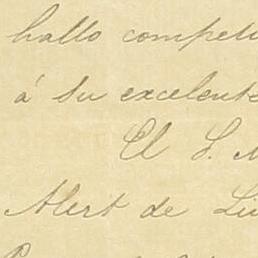 hallo compete
á Su excelente
El S. M
Alert de Li